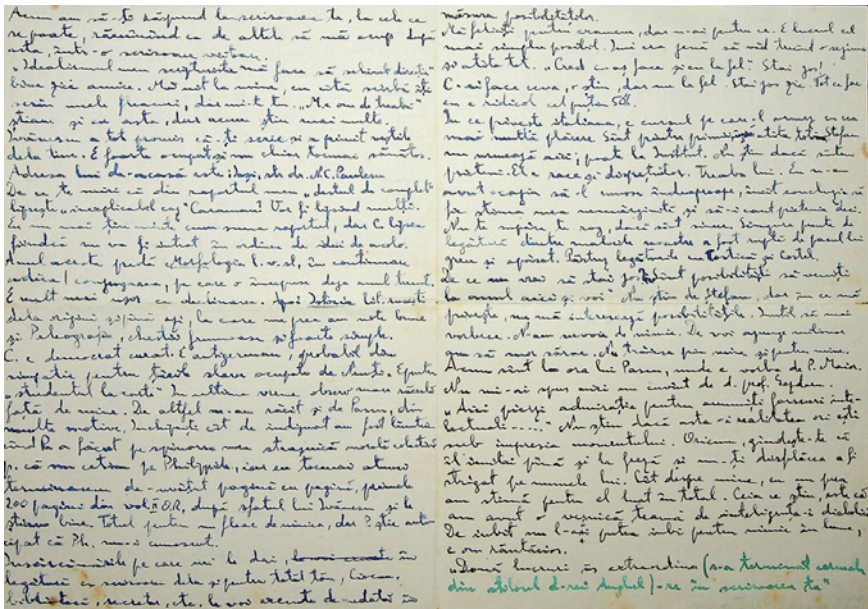 Acum am să-ți răspund la scrisoarea ta, la cele ce
se poate, rămînînd ca de altele să mă ocup după
asta, într-o scrisoare viitoare.
„Idealismul meu
bine zici amice. Mă mit la mine, cu cîtă scîrbă îți
scriu unele fleacuri, dar mi-t tu. „Me om de treabă"
știam și eu asta, dar acum știu mai multe.
Ivănescu a tot promis că-ți scrie și a primit veștile
dela tine. E foarte ocupat și nu chiar tocmai sănătos.
Adresa lui de-acasă este: Iași, str. dr. N. C. Paulescu
De ce te miri că din raportul meu „destul de complet"
lipsește „inexplicabil caz" Caraman? Vor fi lipsind mulți.
Eu nu mai țin minte cum suna raportul, dar C. lipsea
fiindcă nu va fi intrat în ordinea de idei de acolo.
Anul acesta predă Morfologia l. v. sl., în continuare
adica! conjugarea, pe care o începuse deja anul trecut.
E mult mai ușor ca declinarea. Apoi Istoria lit. rusești
dela origini și pînă azi, la care nu prea am note bune
și Paleografia, chestii frumoase și foarte simple.
C. e democrat curat. E antigerman, probabil din
simpatie pentru țările slave ocupate de Nemți. E pentru
„studentul la carte" În ultima vreme, observ mare răceală
față de mine. De altfel m-am răcit și de Pascu, din
multe motive. Închipuie cît de indignat am fost lăuntric
cînd Pa a făcut pe spinarea mea strașnică
p. că nu cetim pe Philippide, iar eu tocmai atunci
terminasem de-nvățat pagină cu pagină, primele
200 pagini din vol. II O.R., după sfatul lui Ivănescu și le
știam bine. Totul pentru un fleac de nimica, dar P. știe
că Ph. nu-i cunoscut.
Însărcinările pe care mi le dai, în
legătură cu scrisoarea dela și pentru tatăl tău,
bibliotecă, secretar, etc. le voi executa de-ndată în
măsura posibilităților.
Mă feliciți pentru examene, dar n-ai pentru ce. E lucrul cel
mai simplu posibil. Îmi era jenă să văd trecînd o
și atîta tot. „Cred c-aș face și eu la fel! Stai jos!
C-ai face ceva, o știu, dar nu la fel. Stai jos zic. Tot ce fac
eu e ridicol cel puțin 50%.
În ce privește italiana, e cursul pe care-l urmez cu cea
mai multă plăcere Sînt printre primii și atîta tot. Ștefan
nu urmează aici, poate la Institut. Nu știu dacă sîntem
prieteni. El e rece și disprețuitor. Treaba lui. Eu n-am
avut ocazia să-l
fie stima mea nemărginită și să-i caut prietenia deci.
Nu te supăra, te rog, dacă sînt sincer. Singura punte de
legătură dintre naturile noastre a fost ruptă de pasul lui
greu și apăsat. Păstrez legăturile cu și Costel.
De ce nu vrei să stai jos. Sînt posibilități să veniți
la anul aici și voi. Nu știu de Ștefan, dar în ce mă
privește, nu mă interesează posibilitățile. Inutil să mai
vorbesc. N-am nevoie de nimic. De voi ajunge milionar
am să mor sărac. Nu trăiesc prin mine și pentru mine.
Acum sînt la ora lui Pascu, unde e vorba de P. Maior.
Nu mi-ai spus nici un cuvînt de d. prof. Bogdan.
„Aici pierzi admirația pentru anumiți intelectuali....." Nu știu dacă asta-i realitatea ori ești
sub impresia momentului. Oricum, gîndește-te că
îl imitai pînă și la frază și nu-ți displăcea a fi
strigat pe numele lui. Cît despre mine, eu nu prea
am stimă pentru el luat în total. Ceia ce știu, este că
am avut o veșnică teamă de inteligența-i diabolică
De iubit nu l-aș putea iubi pentru nimic în lume,
e om răutăcios.
„Două lucruri îs extraordina (s-a terminat cerneala
din stiloul d-rei Anghel)-re în scrisoarea ta"